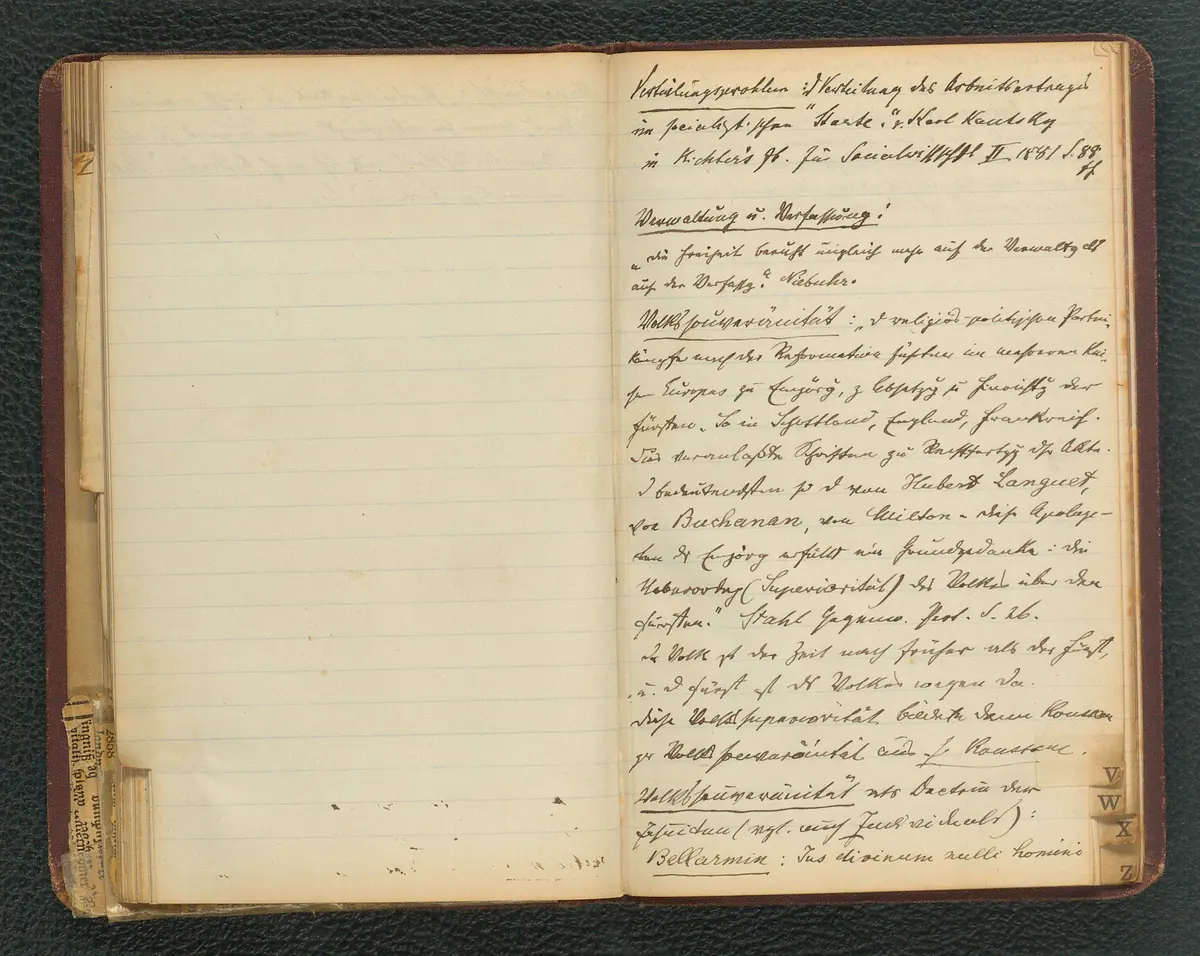 Verteilungsproblem: d Verteilung des Arbeitsertrages
im socialistischen "Staate." v. Karl Kautsky
in Richter's Jb. für Socialwissschft II 1881 S. 88
ff
Verwaltung u. Verfassung:
„die Freiheit beruht ungleich mehr auf der Verwaltg als
auf der Verfassg." Niebuhr.
Volkssouveränität: „d religiös-politischen Partei-
kämpfe nach der Reformation führten in mehreren Rei-
chen Europas zu Empörg, z Absetzg u Hinrichtg der
Fürsten. So in Schottland, England, Frankreich.
Dies veranlaßte Schriften zu Rechtfertgg dsr Akte.
D bedeutendsten s d von Hubert Languet,
von Buchanan, von Milton - diese Apologe-
ten der Empörg erfüllt ein Grundgedanke: die
Ueberordng (Superiorität) des Volkes über den
Fürsten." Stahl Gegenw. Part. S. 26.
Das Volk ist der Zeit nach früher als der Fürst,
u. d Fürst ist des Volkes wegen da.
Diese Volkssuperiorität bildete dann Rousseau
zur Volkssouveränität aus. s. Rousseau.
Volkssouveränität als Doctrin der
Jesuiten (vgl. auch ):
Bellarmin: Jus divinum nulli homini
V
W
X
Z